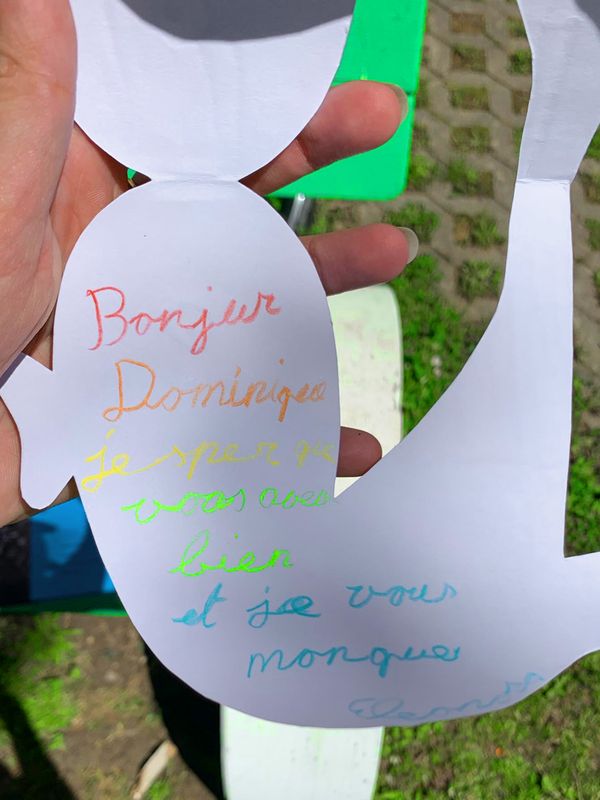 Bonjur
Dominique
je sper que
vous avez
bien
et je vous
monque